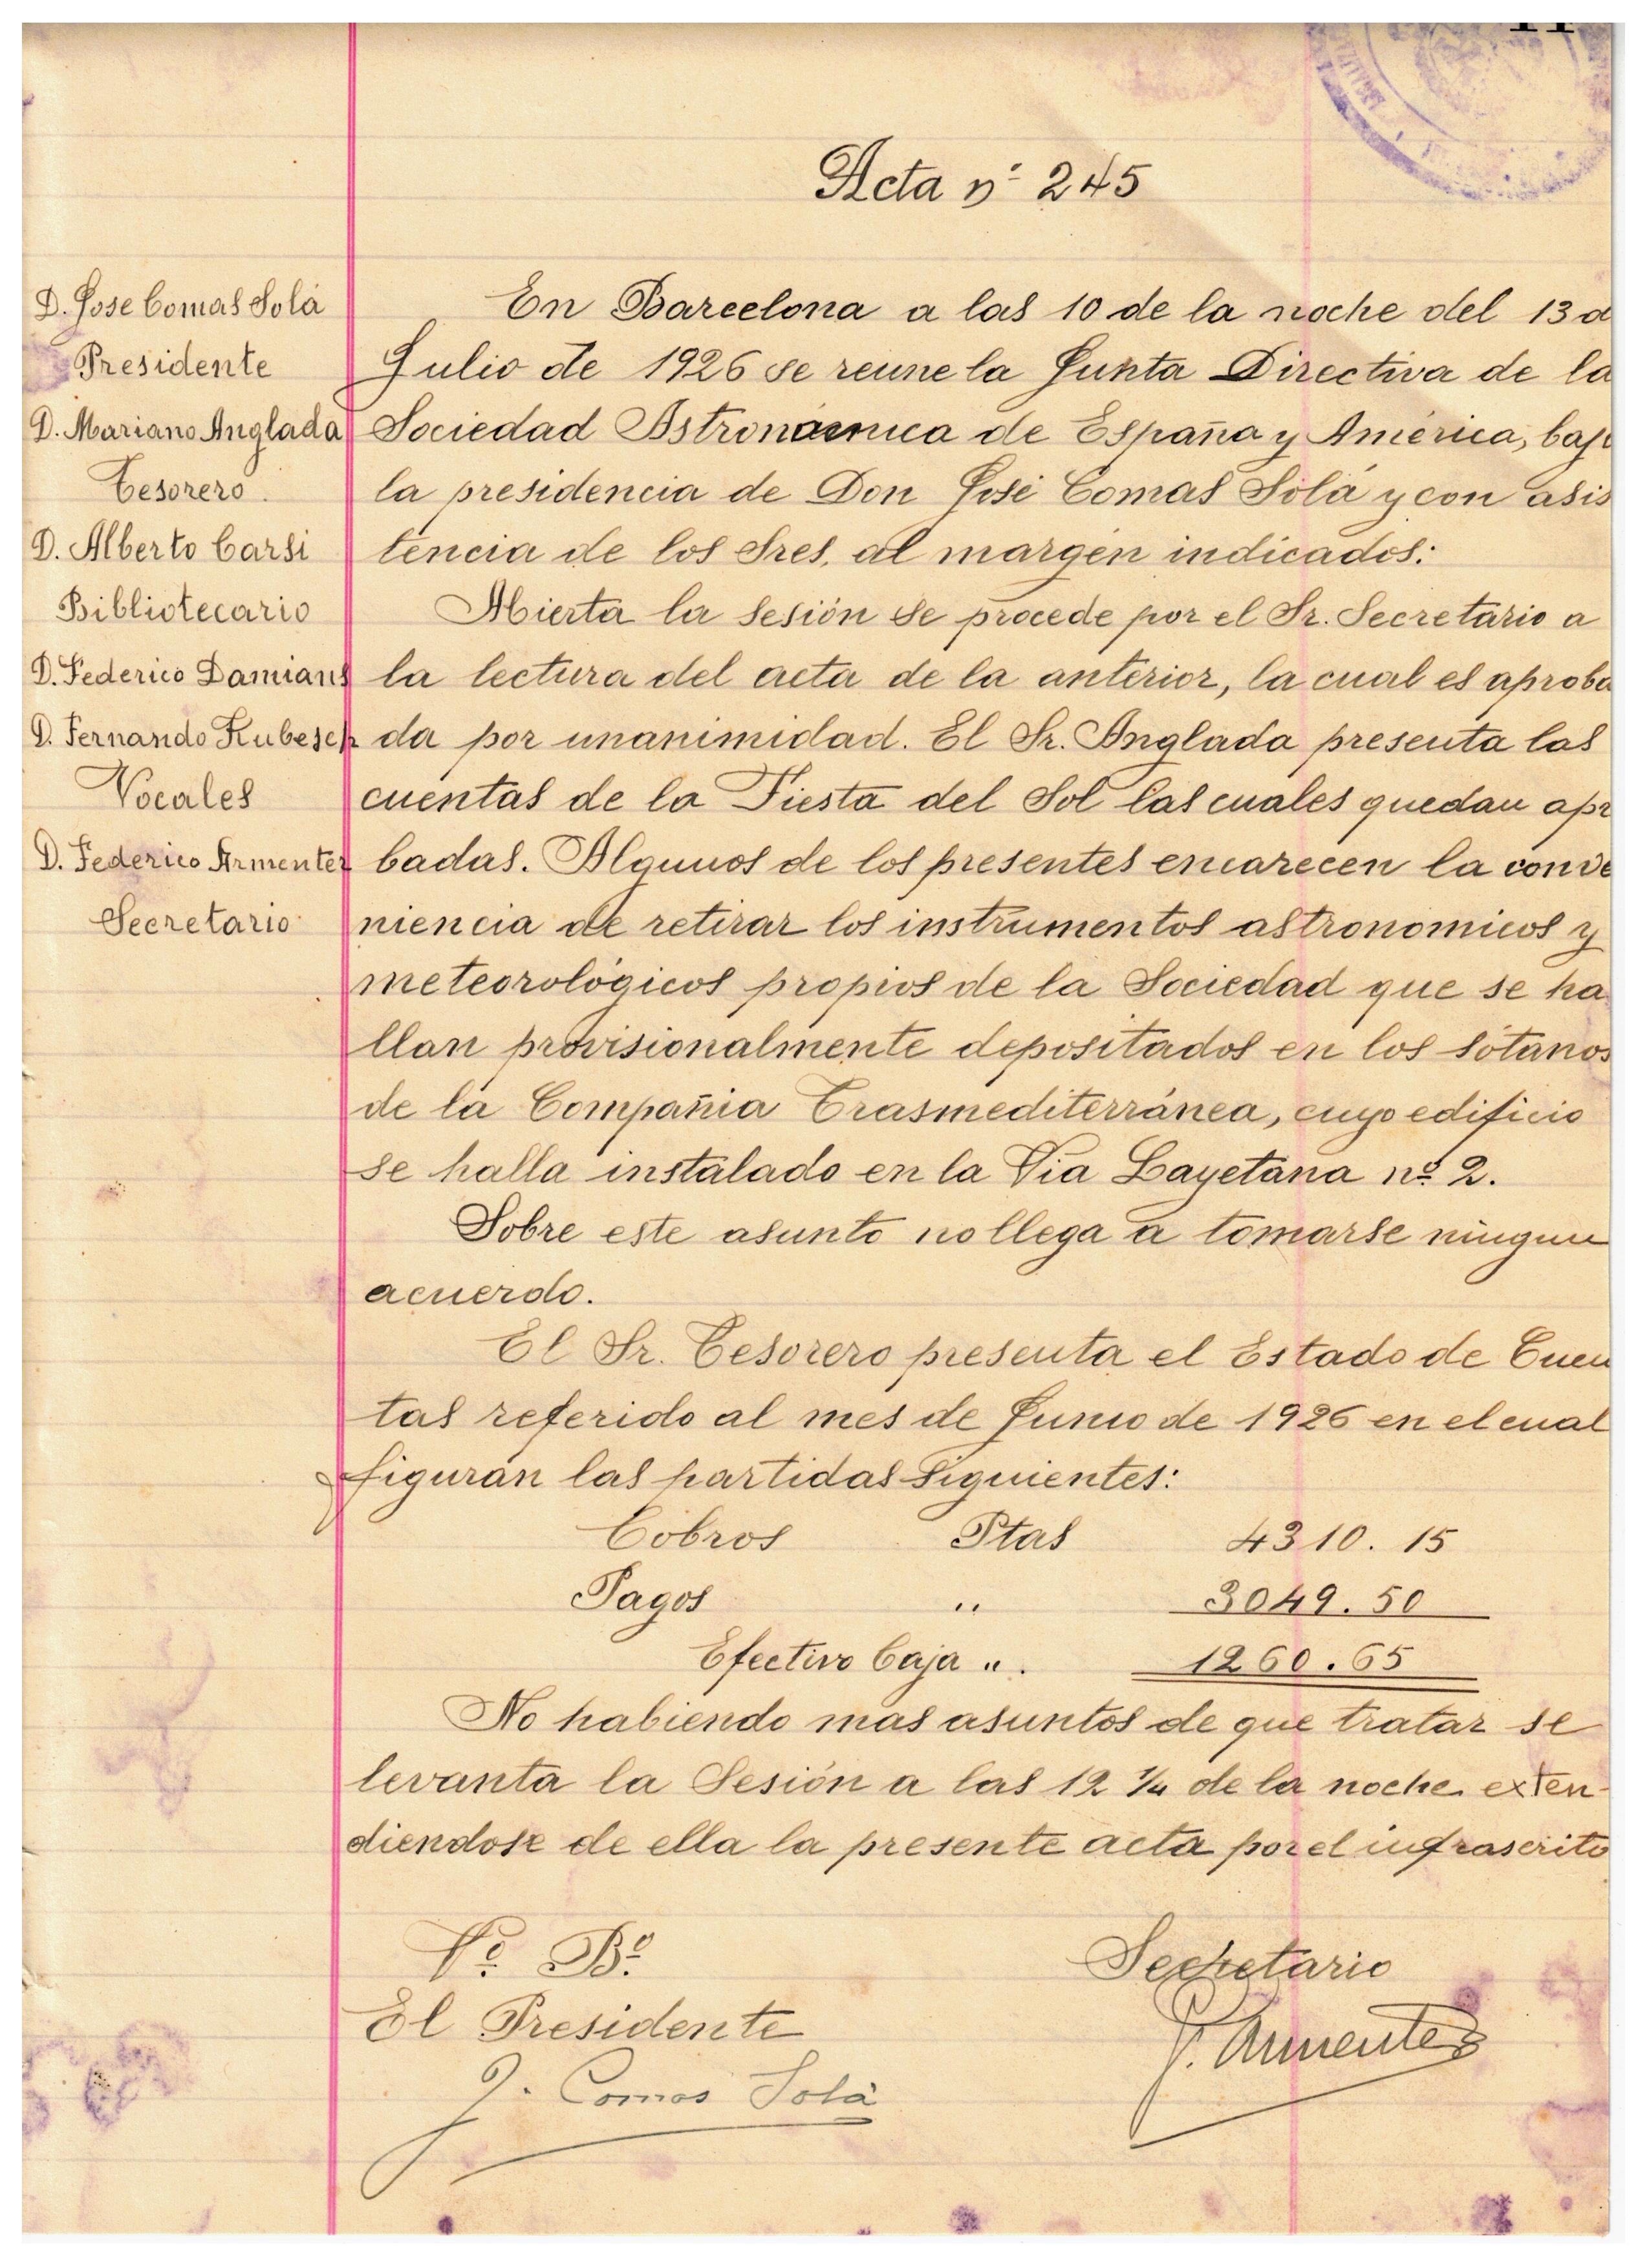 Acta nº 245
D. Jose Comas Solá
Presidente
D. Mariano Anglada
Tesorero.
D. Alberto Carsi
Bibliotecario
D. Federico Damians
D. Fernando Kubesch
Vocales
D. Federico Armenter
Secretario
En Barcelona a las 10 de la noche del 13 d
Julio de 1926 se reune la Junta Directiva de la
Sociedad Astronómica de España y América, bajo
la presidencia de Don José Comas Solá y con asis
tencia de los Sres. al margen indicados:
Abierta la sesión se procede por el Sr. Secretario a
la lectura del acta de la anterior, la cual es aproba
da por unanimidad. El Sr. Anglada presenta las
cuentas de la Fiesta del Sol las cuales quedan apr
badas. Algunos de los presentes encarecen la conve
niencia de retirar los instrumentos astronomicos y
meteorológicos propios de la Sociedad que se ha
llan provisionalmente depositados en los sótanos
de la Compañia Trasmediterránea, cuyo edificio
se halla instalado en la Vía Layetana nº 2.
Sobre este asunto no llega a tomarse ningun
acuerdo.
El Sr. Tesorero presenta el Estado de Cuen
tas referido al mes de Junio de 1926 en el cual
figuran las partidas siguientes:
Cobros Ptas 4310.15
Pagos " 3049.50
Efectivo Caja ". 1260.65
No habiendo mas asuntos de que tratar se
levanta la Sesión a las 12 1/4 de la noche exten-
diendose de ella la presente acta por el infrascrito
Vº. Bº.
El Presidente
J. Comas Solá
Secretario
F. Armenter